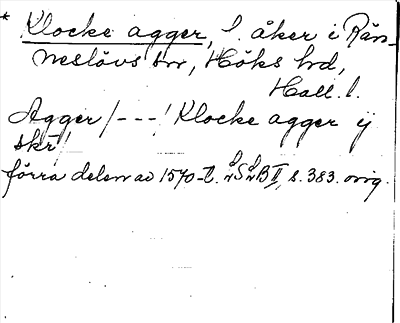 * Klocke agger, l. åker i Rän-
neslövs sn, Höks hd,
Hall. l.
Agger /---/ Klocke agger ij
skr̄
förra delen av 1570-t. B II, s. 383. orig.